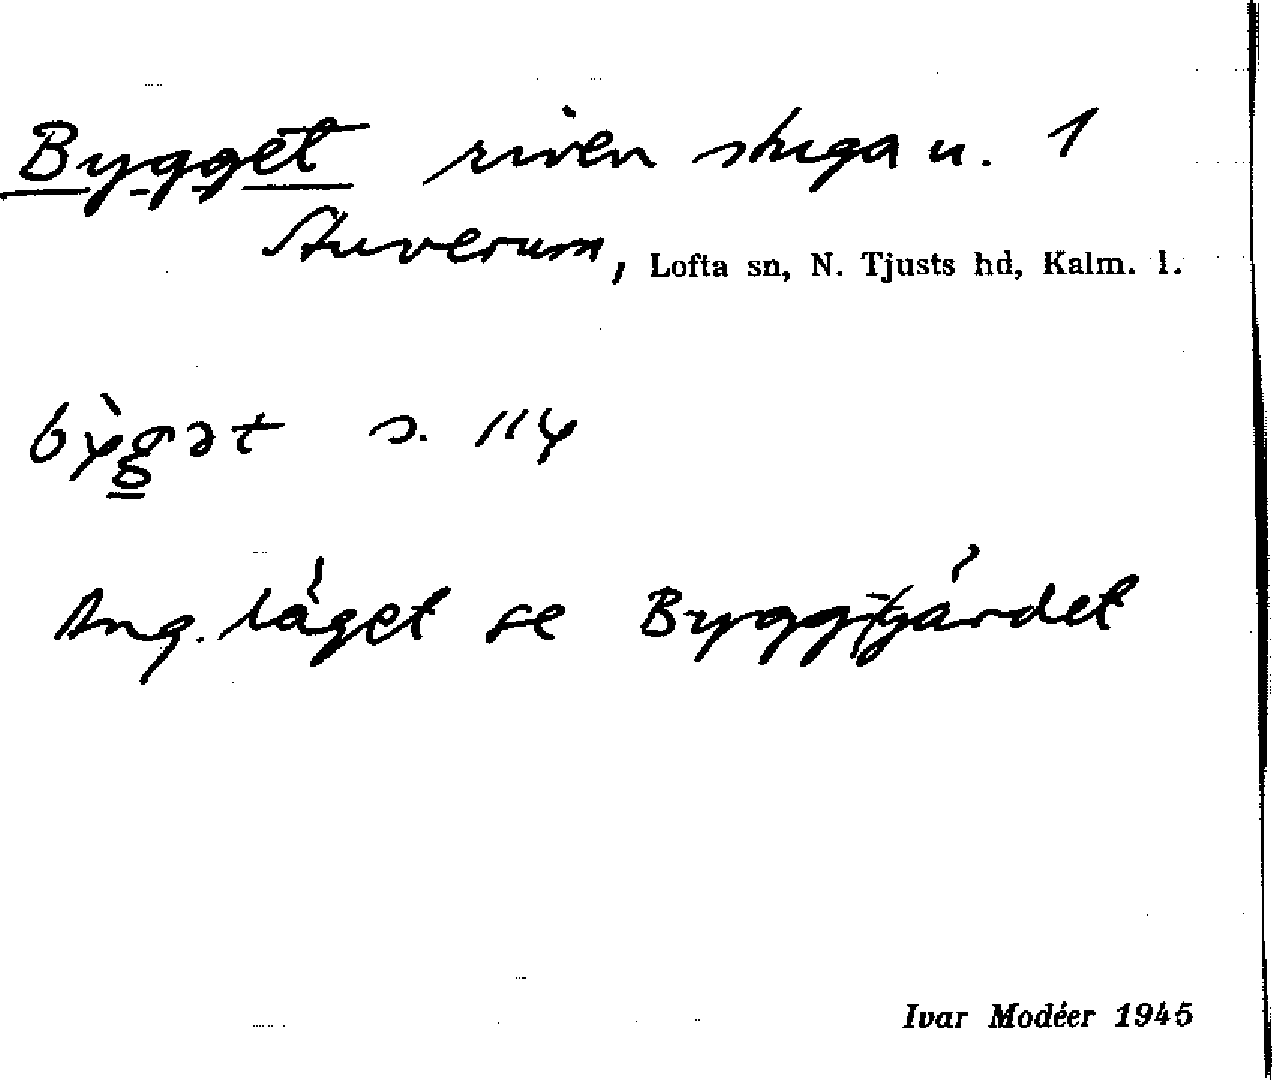 Bygget riven stuga u. 1
Stuverum, Lofta sn, N. Tjusts hd, Kalm. l.
bỳg̲ət s. 114
Ang. läget se Byggtjärdet
Ivar Modéer 1945